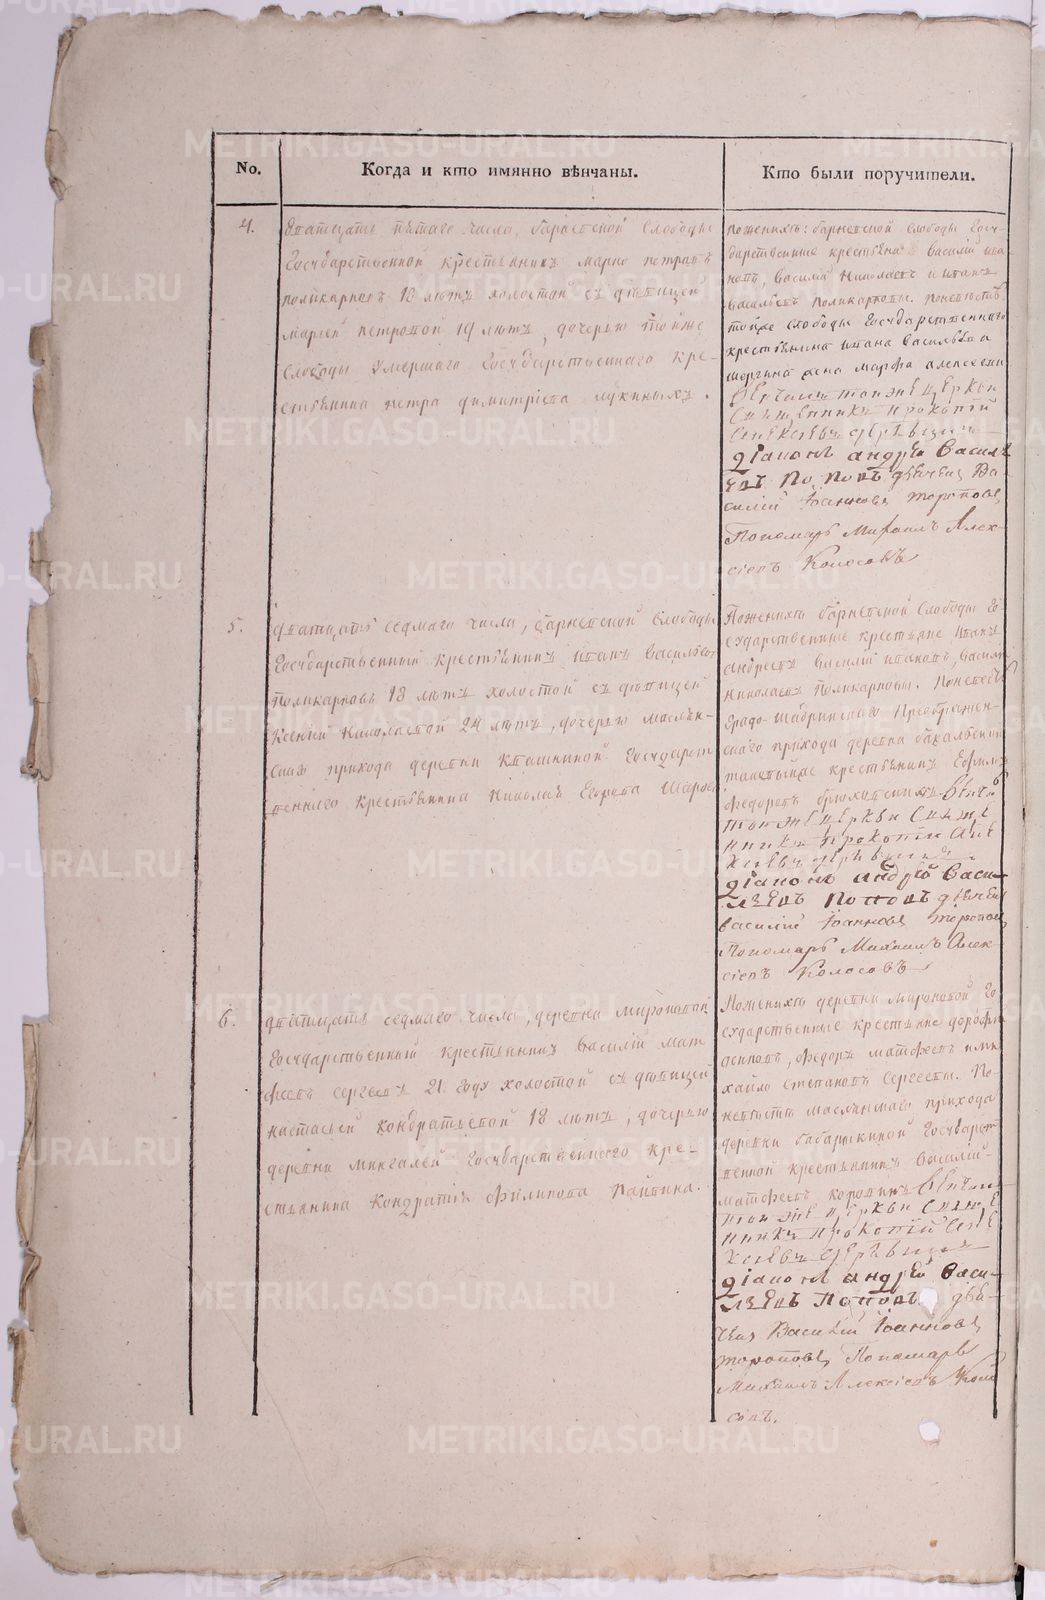 No.
Когда и кто имянно вѣнчаны.
Кто были поручители.
4.
дватцать пятаго число, барневской слободы
Государственной крестьянинъ марко петровъ
поликарповъ 18 лѣтъ холостой съ дѣвицей
марьей петровой 19 лѣтъ, дочерью тойже
слободы умершаго Государственнаго кре-
стьянина петра димитріева лукиныхъ.
поженихѣ: барневской слободы Госу-
дарственные крестьяна василий ива-
новъ, василий николаевъ и иванъ
васильевъ поликарповы. поневѣстѣ
тойже слободы Государственнаго
крестьянина ивана васильева
шергина жена марфа алексеева
Венчалъ тояже церкви
Священникъ Прокопій
Алексіевъ
Діаконъ андрей Василь
евъ Поповъ дьячекъ Ва
силій Іоанновъ тороповъ
Пономарь Михаилъ Алек-
сіевъ Колосовъ
5.
дватцать седмаго числа, барневской слободы
Государственный крестьянинъ иванъ васильевъ
Поликарповъ 18 лѣтъ холостой съ дѣвицей
Ксеніей николаевой 24 лѣтъ, дочерью маслян-
скаго прихода деревни квашниной Государст
веннаго крестьянина Николая Егорова
Поженихѣ барневской слободы Го-
сударственные крестьяне иванъ
андреевъ василий иваковъ, василий
николаевъ Поликарповы. Поневестѣ
Градо-Шадринскаго Преображен-
скаго прихода деревни
крестьянинъ Ефимъ
федоровъ
тояже церкви Свяще
нникъ Прокопій Але
ксіевъ
Діаконъ Андрей Васи-
льевъ Поповъ дьячекъ
василій Іоанновъ торопов
Пономарь Михаилъ Алек-
сіевъ Колосовъ
6.
дватцать седмаго числа, деревни мироновой
Государственный крестьянинъ Василій мат
феевъ сергеевъ 21. году холостой съ дѣвицей
настасьей кондратьевой 18 лѣтъ, дочерью
деревни мингалей Государственнаго кре-
стьянина Кондратія Филипова
Поженихѣ деревни мироновой Го-
сударственные крестьяне дорофѣй
федоръ матфеевъ и ми
хайло степановъ Сергеевы. По-
невѣстѣ маслянскаго прихода
деревни бабарыкиной Государст
венной крестьянинъ василій
матфеевъ коровинъ Венчалъ
тояже церкви Свяще
нникъ Прокопій Але
ксіевъ
Діаконъ андрей Васи-
льевъ Поповъ дья-
чекъ Василій Іоанновъ
торопов Пономарь
Михаилъ Алексіевъ Коло
совъ.